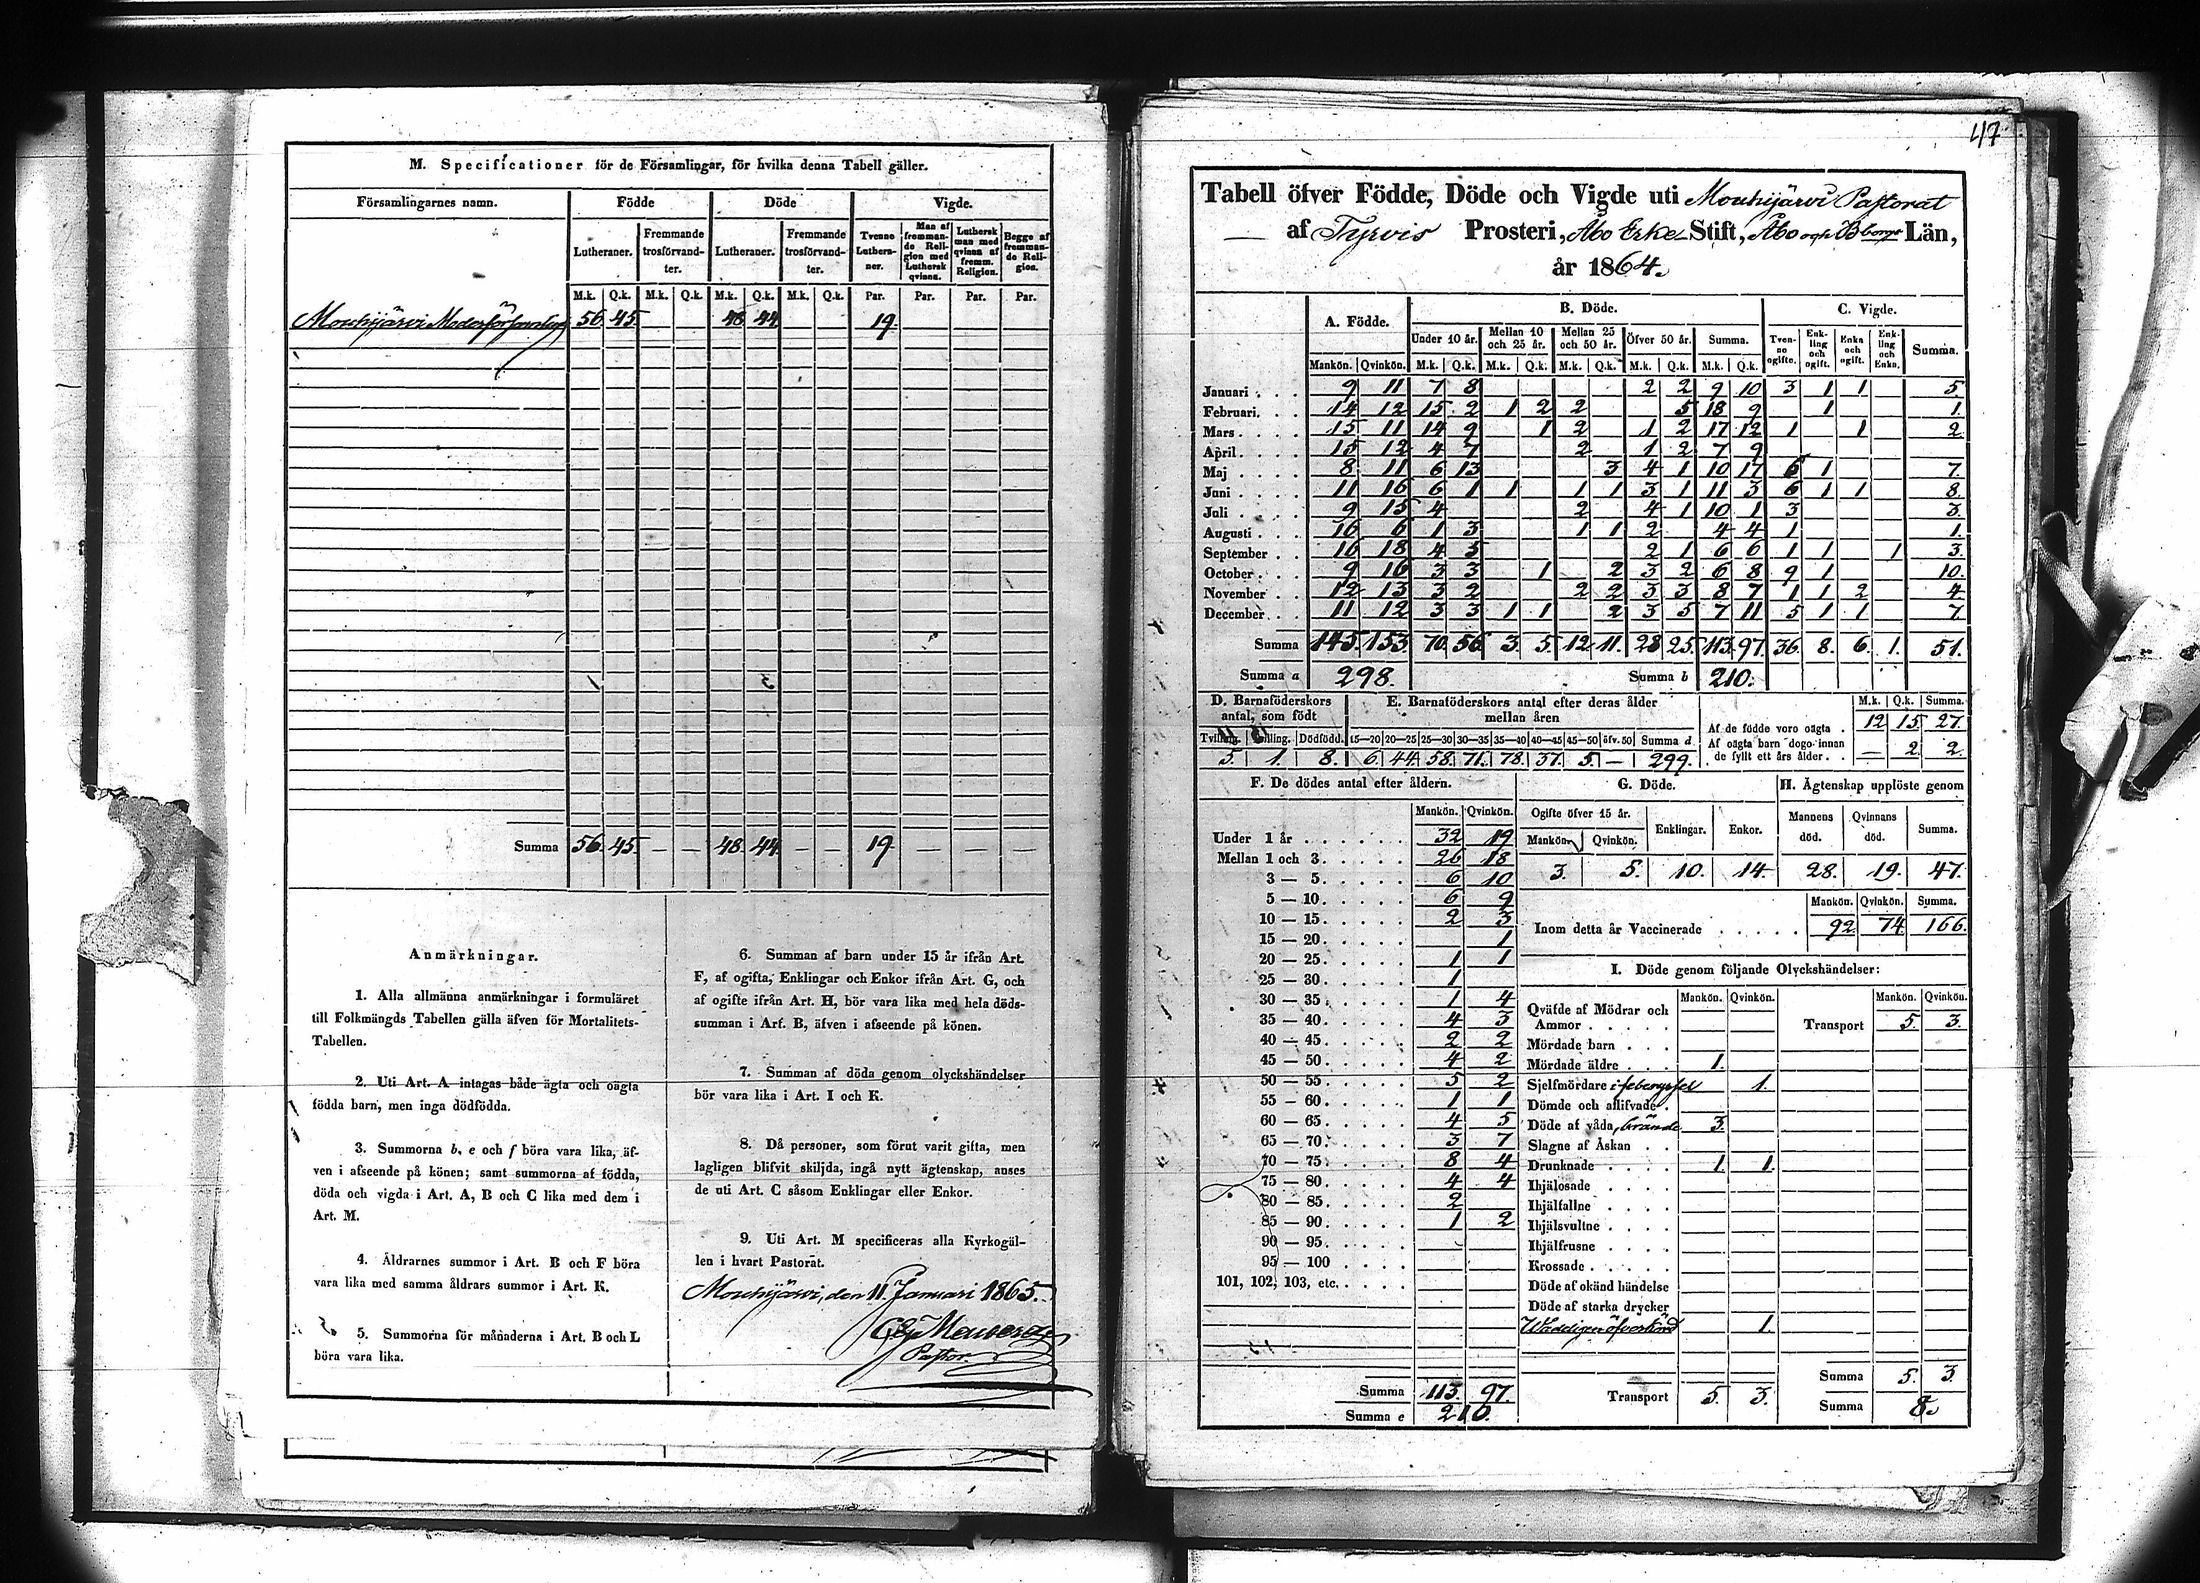 M. Specificationer för de Församlingar, för hvilka denna Tabell gäller.
Församlingarnes namn. Födde Döde Vigde.
Lutheraner. Fremmande trosförvandter. Lutheraner. Fremmande trosförvandter. Tvenne Lutheraner. Man af fremmande Religion med Luthersk qvinna. Luthersk man med qvinna af fremm. Religion. Begge af fremmande Religion.
M.k. Q.k. M.k. Q.k. M.k. Q.k. M.k. Q.k. Par. Par. Par. Par.
Mouhijärvi Moderförsamling 56 45 48 44 19
Summa 56. 45. — — 48. 44. — — 19 — — —
Anmärkningar.
1. Alla allmänna anmärkningar i formuläret
till Folkmängds Tabellen gälla äfven för Mortalitets-
Tabellen.
2. Uti Art. A intagas både ägta och oägta
födda barn, men inga dödfödda.
3. Summorna b, e och f böra vara lika, äf-
ven i afseende på könen; samt summorna af födda,
döda och vigda i Art. A, B och C lika med dem i
Art. M.
4. Åldrarnes summor i Art. B och F böra
vara lika med samma åldrars summor i Art. K.
5. Summorna för månaderna i Art. B och L
böra vara lika.
6. Summan af barn under 15 år ifrån Art.
F, af ogifta, Enklingar och Enkor ifrån Art. G, och
af ogifte ifrån Art. H, bör vara lika med hela döds-
summan i Art. B, äfven i afseende på könen.
7. Summan af döda genom olyckshändelser
bör vara lika i Art. I och K.
8. Då personer, som förut varit gifta, men
lagligen blifvit skiljda, ingå nytt ägtenskap, anses
de uti Art. C såsom Enklingar eller Enkor.
9. Uti Art. M specificeras alla Kyrkogäl-
len i hvart Pastorat.
Mouhijärvi, den 11. Januari 1865.
Pastor.
47
Tabell öfver Födde, Döde och Vigde uti Mouhijärvi Pastorat
— af Tyrvis Prosteri, Åbo Erke Stift, Åbo och Bborgs Län,
år 1864.
A. Födde. B. Döde. C. Vigde.
Under 10 år. Mellan 10 och 25 år. Mellan 25 och 50 år. Öfver 50 år. Summa. Tvenne ogifte. Enkling och ogift. Enka och ogift. Enkling och Enka. Summa.
Mankön. Qvinkön. M.k. Q.k. M.k. Q.k. M.k. Q.k. M.k. Q.k. M.k. Q.k.
Januari 9 11 7 8 2 2 9 10 3 1 1 5.
Februari. 14 12 15 2 1 2 2 5 18 9 1 1.
Mars 15 11 14 9 1 2 1 2 17 12 1 1 2.
April 15 12 4 7 2 1 2 7 9
Maj 8 11 6 13 3 4 1 10 17 6 1 7.
Juni 11 16 6 1 1 1 1 3 1 11 3 6 1 1 8.
Juli 9 15 4 2 4 1 10 1 3 3.
Augusti 16 6 1 3 1 1 2 4 4 1 1.
September 16 18 4 5 2 1 6 6 1 1 1 3.
October 9 16 3 3 1 2 3 2 6 8 9 1 10.
November 12 13 3 2 2 2 3 3 8 7 1 1 2 4.
December 11 12 3 3 1 1 2 3 5 7 11 5 1 1 7.
Summa 145. 153. 70. 56. 3. 5. 12. 11. 28. 25. 113. 97. 36. 8. 6. 1. 51.
Summa a 298. Summa b 210.
D. Barnaföderskors antal, som födt E. Barnaföderskors antal efter deras ålder mellan åren M.k. Q.k. Summa.
Tvilling. Dödfödd. 15—20 20—25 25—30 30—35 35—40 40—45 45—50 öfv. 50 Summa d
5. 1. 8. 6. 44. 58. 71. 78. 37. 5. — 299.
Af de födde voro oägta . 12 15 27.
Af oägta barn dogo innan de fyllt ett års ålder. . — 2. 2.
F. De dödes antal efter åldern.
Mankön. Qvinkön.
Under 1 år 32 19
Mellan 1 och 3. 26 18
3 — 5. 6 10
5 — 10. 6 9
10 — 15. 2 3
15 — 20. 1
20 — 25. 1 1
25 — 30. 1
30 — 35. 1 4
35 — 40. 4 3
40 — 45. 2 2
45 — 50. 4 2
50 — 55. 5 2
55 — 60. 1 1
60 — 65. 4 5
65 — 70. 3 7
70 — 75. 8 4
75 — 80. 4 4
80 — 85. 2
85 — 90. 1 2
90 — 95.
95 — 100
101, 102, 103, etc.
Summa 113. 97.
Summa e 210.
G. Döde.
Ogifte öfver 15 år. Enklingar. Enkor.
Mankön. Qvinkön.
3. 5. 10. 14.
H. Ägtenskap upplöste genom
Mannens död. Qvinnans död. Summa.
28. 19. 47.
Mankön. Qvinkön. Summa.
Inom detta år Vaccinerade 92 74 166.
I. Döde genom följande Olyckshändelser:
Mankön. Qvinkön. Mankön. Qvinkön.
Qväfde af Mödrar och
Ammor Transport 5. 3.
Mördade barn
Mördade äldre 1.
Sjelfmördare i 1.
Dömde och aflifvade
Döde af våda, brände 3.
Slagne af Åskan
Drunknade 1. 1.
Ihjälosade
Ihjälfallne
Ihjälsvultne
Ihjälfrusne
Krossade
Döde af okänd händelse
Döde af starka drycker
öfverkörd 1.
Summa 5. 3.
Transport 5. 3. Summa 8.